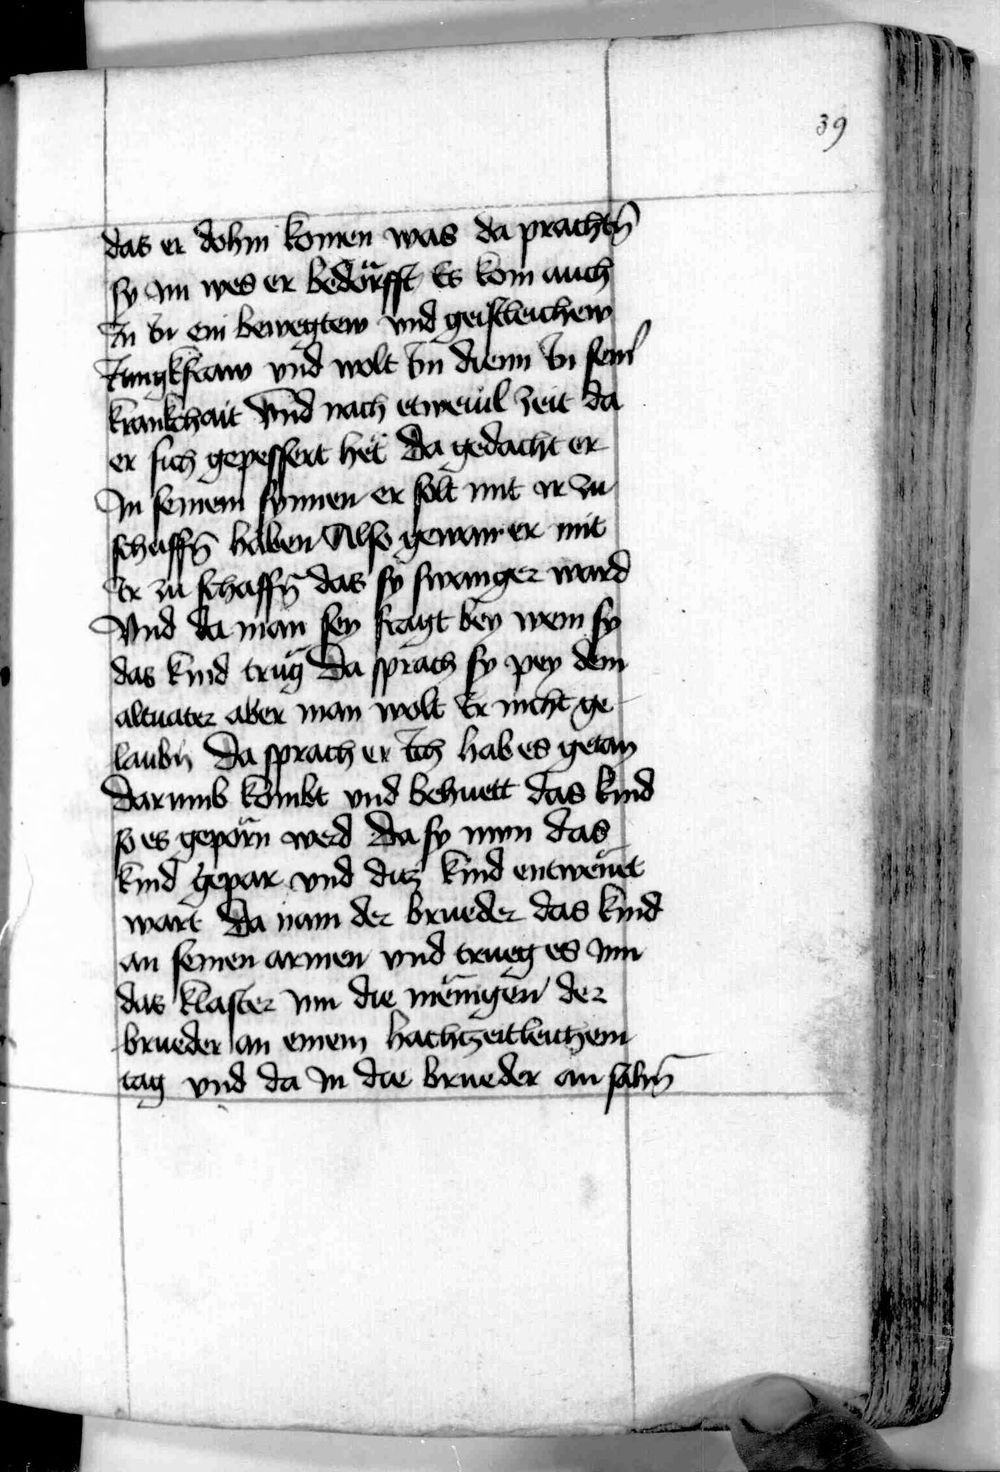 39
das er dohin komen was da prachtn̄
sy Im wes er bedörfft Es kom auch
zu Im ein bewegtew vnd geistleichew
Jungkfraw vnd wolt Im dienn In seinr
krankchait Vnd nach etweuil zeit da
er sich gepessert het Da gedacht er
In seinem synnen er solt mit Ir zu
schaffn̄ haben Also gewan er mit
Ir zu schaffn̄ das sy swanger ward
Vnd da man sey fragt bey wem sy
das kind trüg Da sprach sy pey dem
altuater aber man wolt Er nicht ge-
laubn Da sprach er Ich hab es getan
Darumb kombt vnd behuett das kind
so es geporn werd Da sy nun das
kind gepar vnd ditz kind entwenet
wart Da nam der brueder das kind
an seinen armen vnd trueg es Inn
das klaster Inn die menigen der
brueder an einem hachtzeitleichem
tag vnd da In die brueder an sahn̄